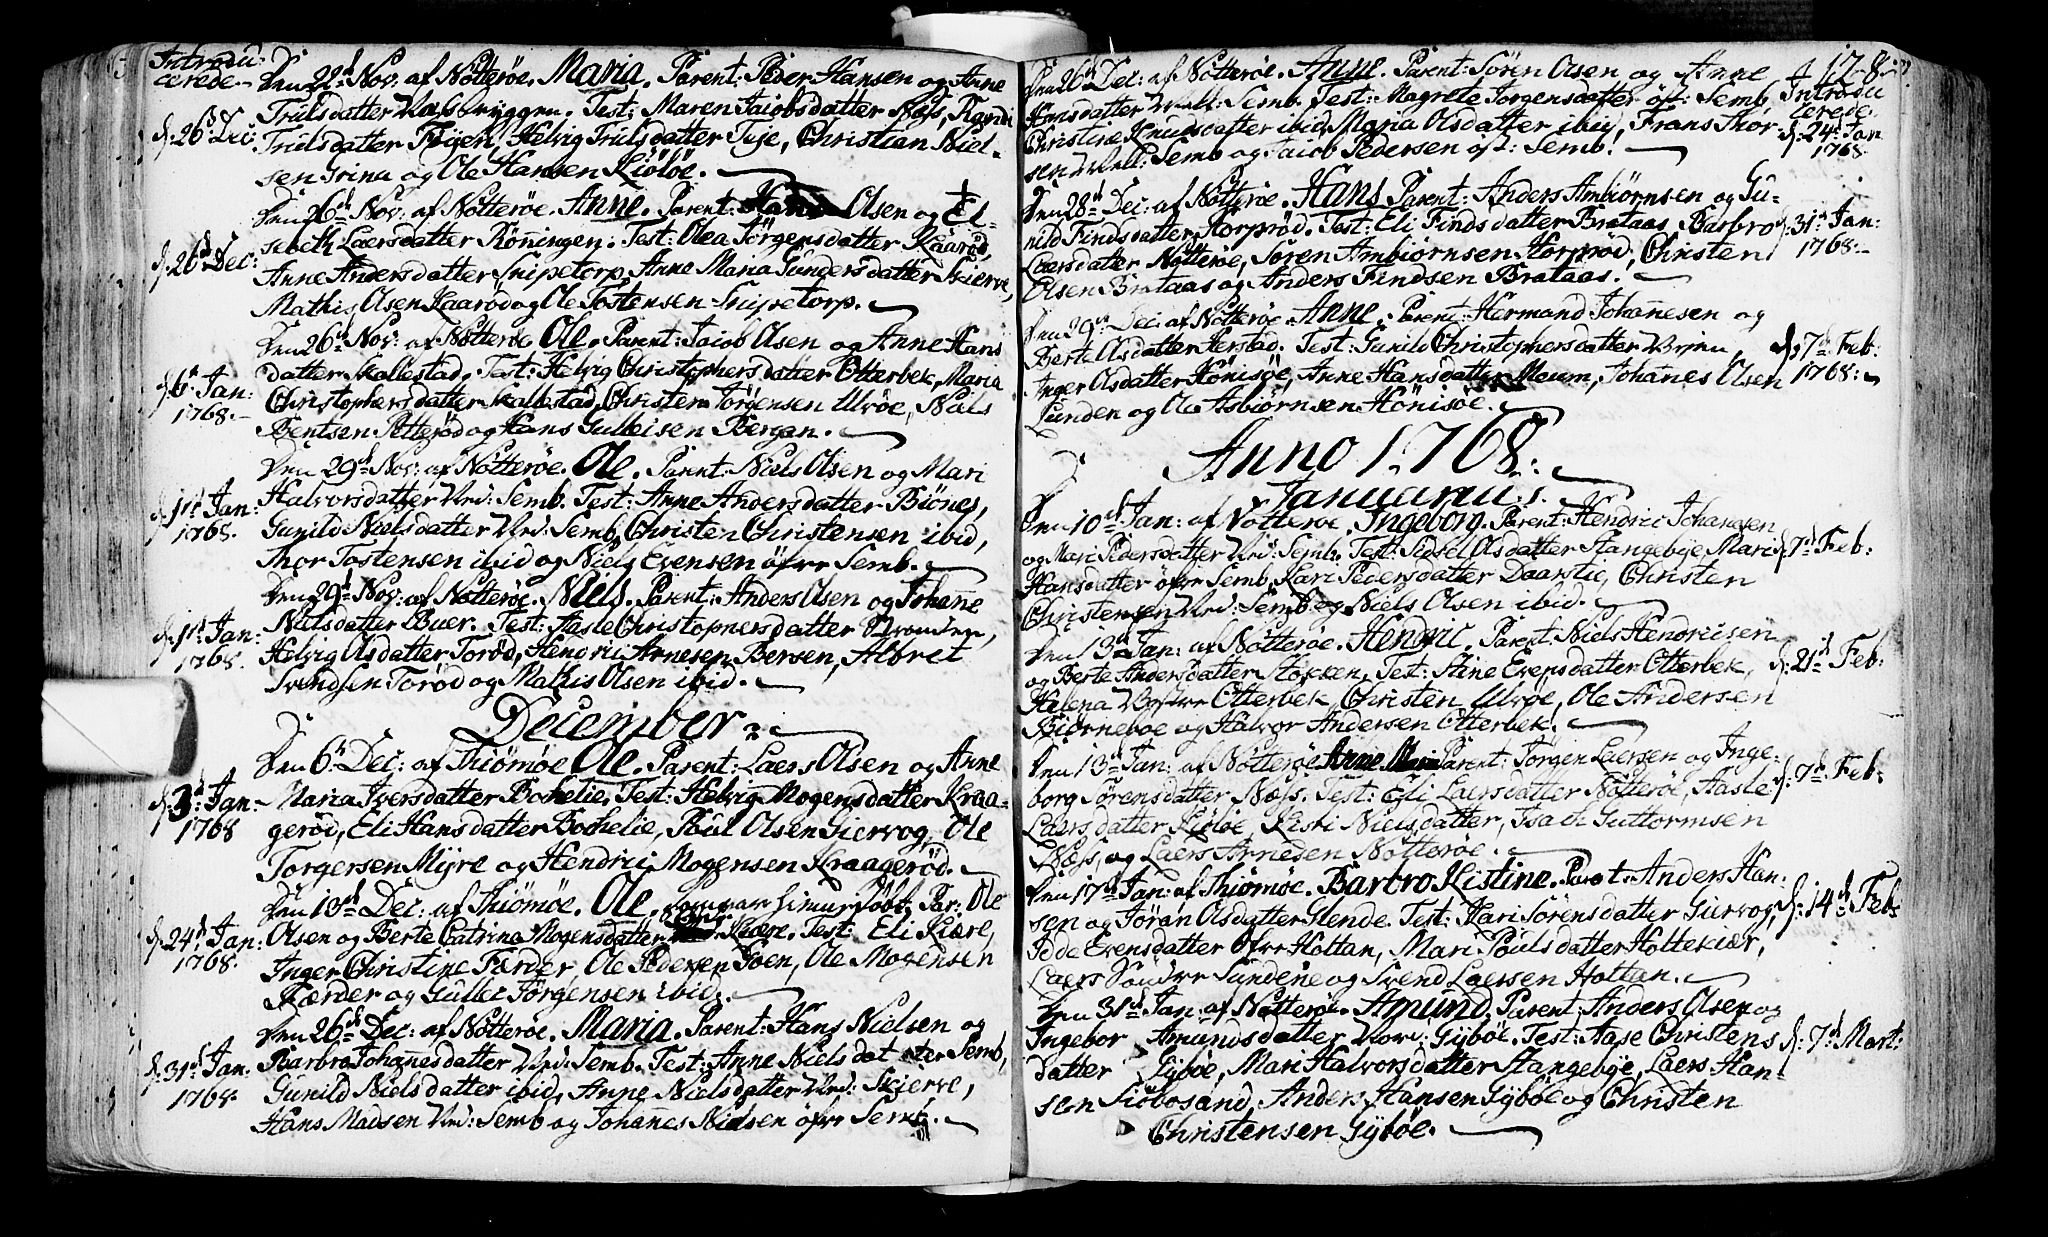 Introdu:
cerede
Den 22d Nov: af Nøtterøe. Maria. Parent: Peder Hansen og Anne
Trulsdatter Test: Maren Jacobsdatter Næss,
d: 26d Dec: Trulsdatter Føyen, Helvig Trulsdatter Teje, Christian Niel-
sen Grinu og Ole Hansen Kiøløe.
Den 26d Nov: af Nøtterøe. Anne. Parent: Olsen og El-
sebeth Laersdatter Rønningen. Test: Olea Jørgensdatter Kaarød,
d: 26d Dec: Anne Andersdatter Snipetorp, Anne Maria Gundersdatter Skierve,
Mathis Olsen Kaarød og Ole Tostensen Snipetorp.
Den 26d Nov: af Nøtterøe Ole. Parent: Jacob Olsen og Anne Hans
datter Skallestad. Test: Helvig Christophersdatter Otterbek, Maria
d: 6d Jan: 1768. Christophersdatter Skallestad, Christen Jørgensen Ulvøe, Niels
Bentsen Petterød og Hans Gulleisen Bergan.
Den 29d Nov: af Nøtterøe. Ole. Parent: Niels Olsen og Mari
Halvorsdatter Ned: Semb. Test: Anne Andersdatter Biønes,
d: 1d Jan: 1768. Gunild Nielsdatter Ned: Semb, Christen Christensen ibid,
Thor Tostensen ibid og Niels Evensen øfre Semb.
Den 29d Nov: af Nøtterøe. Niels. Parent: Anders Olsen og Johanne
Nielsdatter Buer. Test: Aasle Christophersdatter
d: 1d Jan: 1768. Helvig Olsdatter Torød, Hendric Arnesen Bersen, Albret
Svendsen Torød og Mathis Olsen ibid.
December
Den 6d Dec: af Thiømøe Ole. Parent: Laers Olsen og Anne
d: 3d Jan 1768 Maria Iversdatter Bochelie. Test: Helvig Mogensdatter Kraa-
gerød, Eli Hansdatter Bochelie, Poul Olsen Giervog, Ole
Torgersen Myre og Hendric Mogensen Kraagerød.
Den 13d Dec: af Thiømøe. Ole, som var hiemmedøbt. Par: Ole
d: 24d Jan: 1768. Olsen og Berte Catrina Mogensdatter Kiære. Test: Eli Kiære,
Inger Christine Færder, Ole Pedersen Goen, Ole Mogensen
Færder og Gullic Jørgensen ibid.
Den 26d Dec: af Nøtterøe. Maria. Parent: Hans Nielsen og
d: 31d Jan: 1768. Barbro Johanesdatter Ned: Semb. Test: Anne Nielsdatter Semb,
Gunild Nielsdatter ibid, Anne Nielsdatter Ned: Skierve,
Hans Madsen Ned: Semb og Johannes Nielsen øfre Semb.
128.
Introdu
cerede
Den 26d Dec: af Nøtterøe. Anne. Parent: Søren Olsen og Anne
Arnsdatter Semb. Test: Magrete Jørgensdatter øst: Semb,
Christine Knudsdatter ibid, Maria Olsdatter ibid, Frans Thor d: 24d Jan 1768.
sen Semb og Jacob Pedersen øst: Semb.
Den 28d Dec: af Nøtterøe. Hans. Parent: Anders Ambiørnsen og Gu-
nild Findsdatter Horprød. Test: Eli Findsdatter Brataas, Barbro d: 31d Jan: 1768.
Laersdatter Nøtterøe, Søren Ambiørnsen Horprød, Christen
Olsen Brataas og Anders Findsen Brataas.
Den 29d Dec: af Nøtterøe. Anne. Parent: Hermand Johannesen og
Berte Olsdatter Herstad. Test: Gunild Christophersdatter d: 7d Feb: 1768.
Inger Olsdatter Hønisøe, Anne Hansdatter Meum, Johanes Olsen
Lunden og Ole Asbiørnsen Hønisøe.
Anno 1768.
Januarius.
Den 10d Jan: af Nøtterøe. Ingeborg. Parent: Hendric Johansen
og Mari Pedersdatter Ned: Semb. Test: Sidsel Olsdatter Stangebye, Mari d: 7d Feb:
Hansdatter øfre Semb, Kari Pedersdatter Daarstie, Christen
Christensen Ned: Semb og Niels Olsen ibid.
Den 13d Jan: af Nøtterøe. Hendric. Parent: Niels Hendricsen
og Berte Andersdatter Stokken. Test: Stine Evensdatter Otterbek, d: 21d Feb:
Helena Otterbek, Christen Ulvøe, Ole Andersen
Biørneboe og Halvor Andersen Otterbek.
Den 13d Jan: af Nøtterøe Anne Parent: Jørgen Laersen og Inge-
borg Sørensdatter Næss. Test: Eli Laersdatter Nøtterøe, Aasle d: 7d Feb:
Laersdatter Kiøløe, Kisti Nielsdatter, Isach Guttormsen
Næss, og Laers Arnesen Nøtterøe.
Den 17d Jan: af Thiømøe. Barbro Kistine. Parent: Anders Han-
sen og Jøran Olsdatter Glende. Test: Kari Sørensdatter Giervog, d: 14d Feb:
Idde Evensdatter Øfre Holtan, Mari Poulsdatter Holtekiær,
Laers Sundene og Svend Laersen Holtan.
Den 31d Jan: af Nøtterøe. Amund. Parent: Anders Olsen og
Ingebor Amundsdatter Nord: Gybøe. Test: Aase Christens d: 7d Mart:
datter Gybøe, Mari Halvorsdatter Stangebye, Laers Han-
sen Siøbosand, Anders Hansen Gybøe og Christen
Christensen Gybøe.